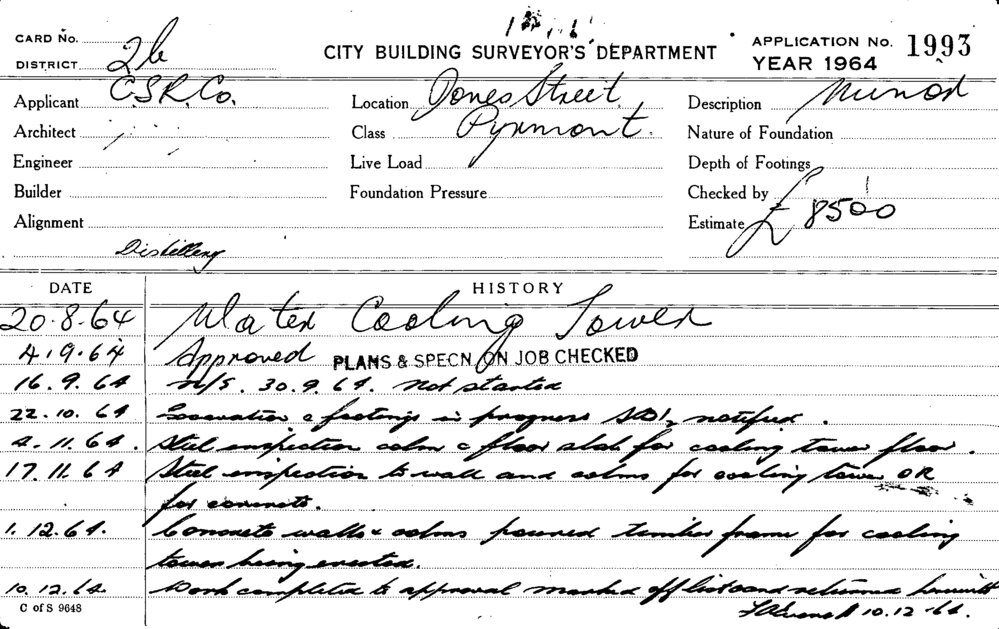 CARD No.
DISTRICT 26
CITY BUILDING SURVEYOR'S DEPARTMENT
APPLICATION No. 1993
YEAR 1964
Applicant C.S.R. Co.
Location Jones Street
Description Minor
Architect
Class Pyrmont.
Nature of Foundation
Engineer
Live Load
Depth of Footings
Builder
Foundation Pressure
Checked by
Alignment
Estimate £8500
Distillery
DATE
HISTORY
20.8.64 Water Cooling Tower
4.9.64 Approved PLANS & SPECN ON JOB CHECKED
16.9.64 N/S. 30.9.64. Not started
22.10.64 Excavation & footings in progress notified.
4.11.64. Steel inspection colm & floor slab for cooling tower floor.
17.11.64 Steel inspection to wall and colms for cooling tower OK
for concrete.
1.12.64. Concrete walls & colms poured timber frame for cooling
tower being erected.
10.12.64 Work completed to approval marked off list and returned herewith
10.12.64.
C of S 9648